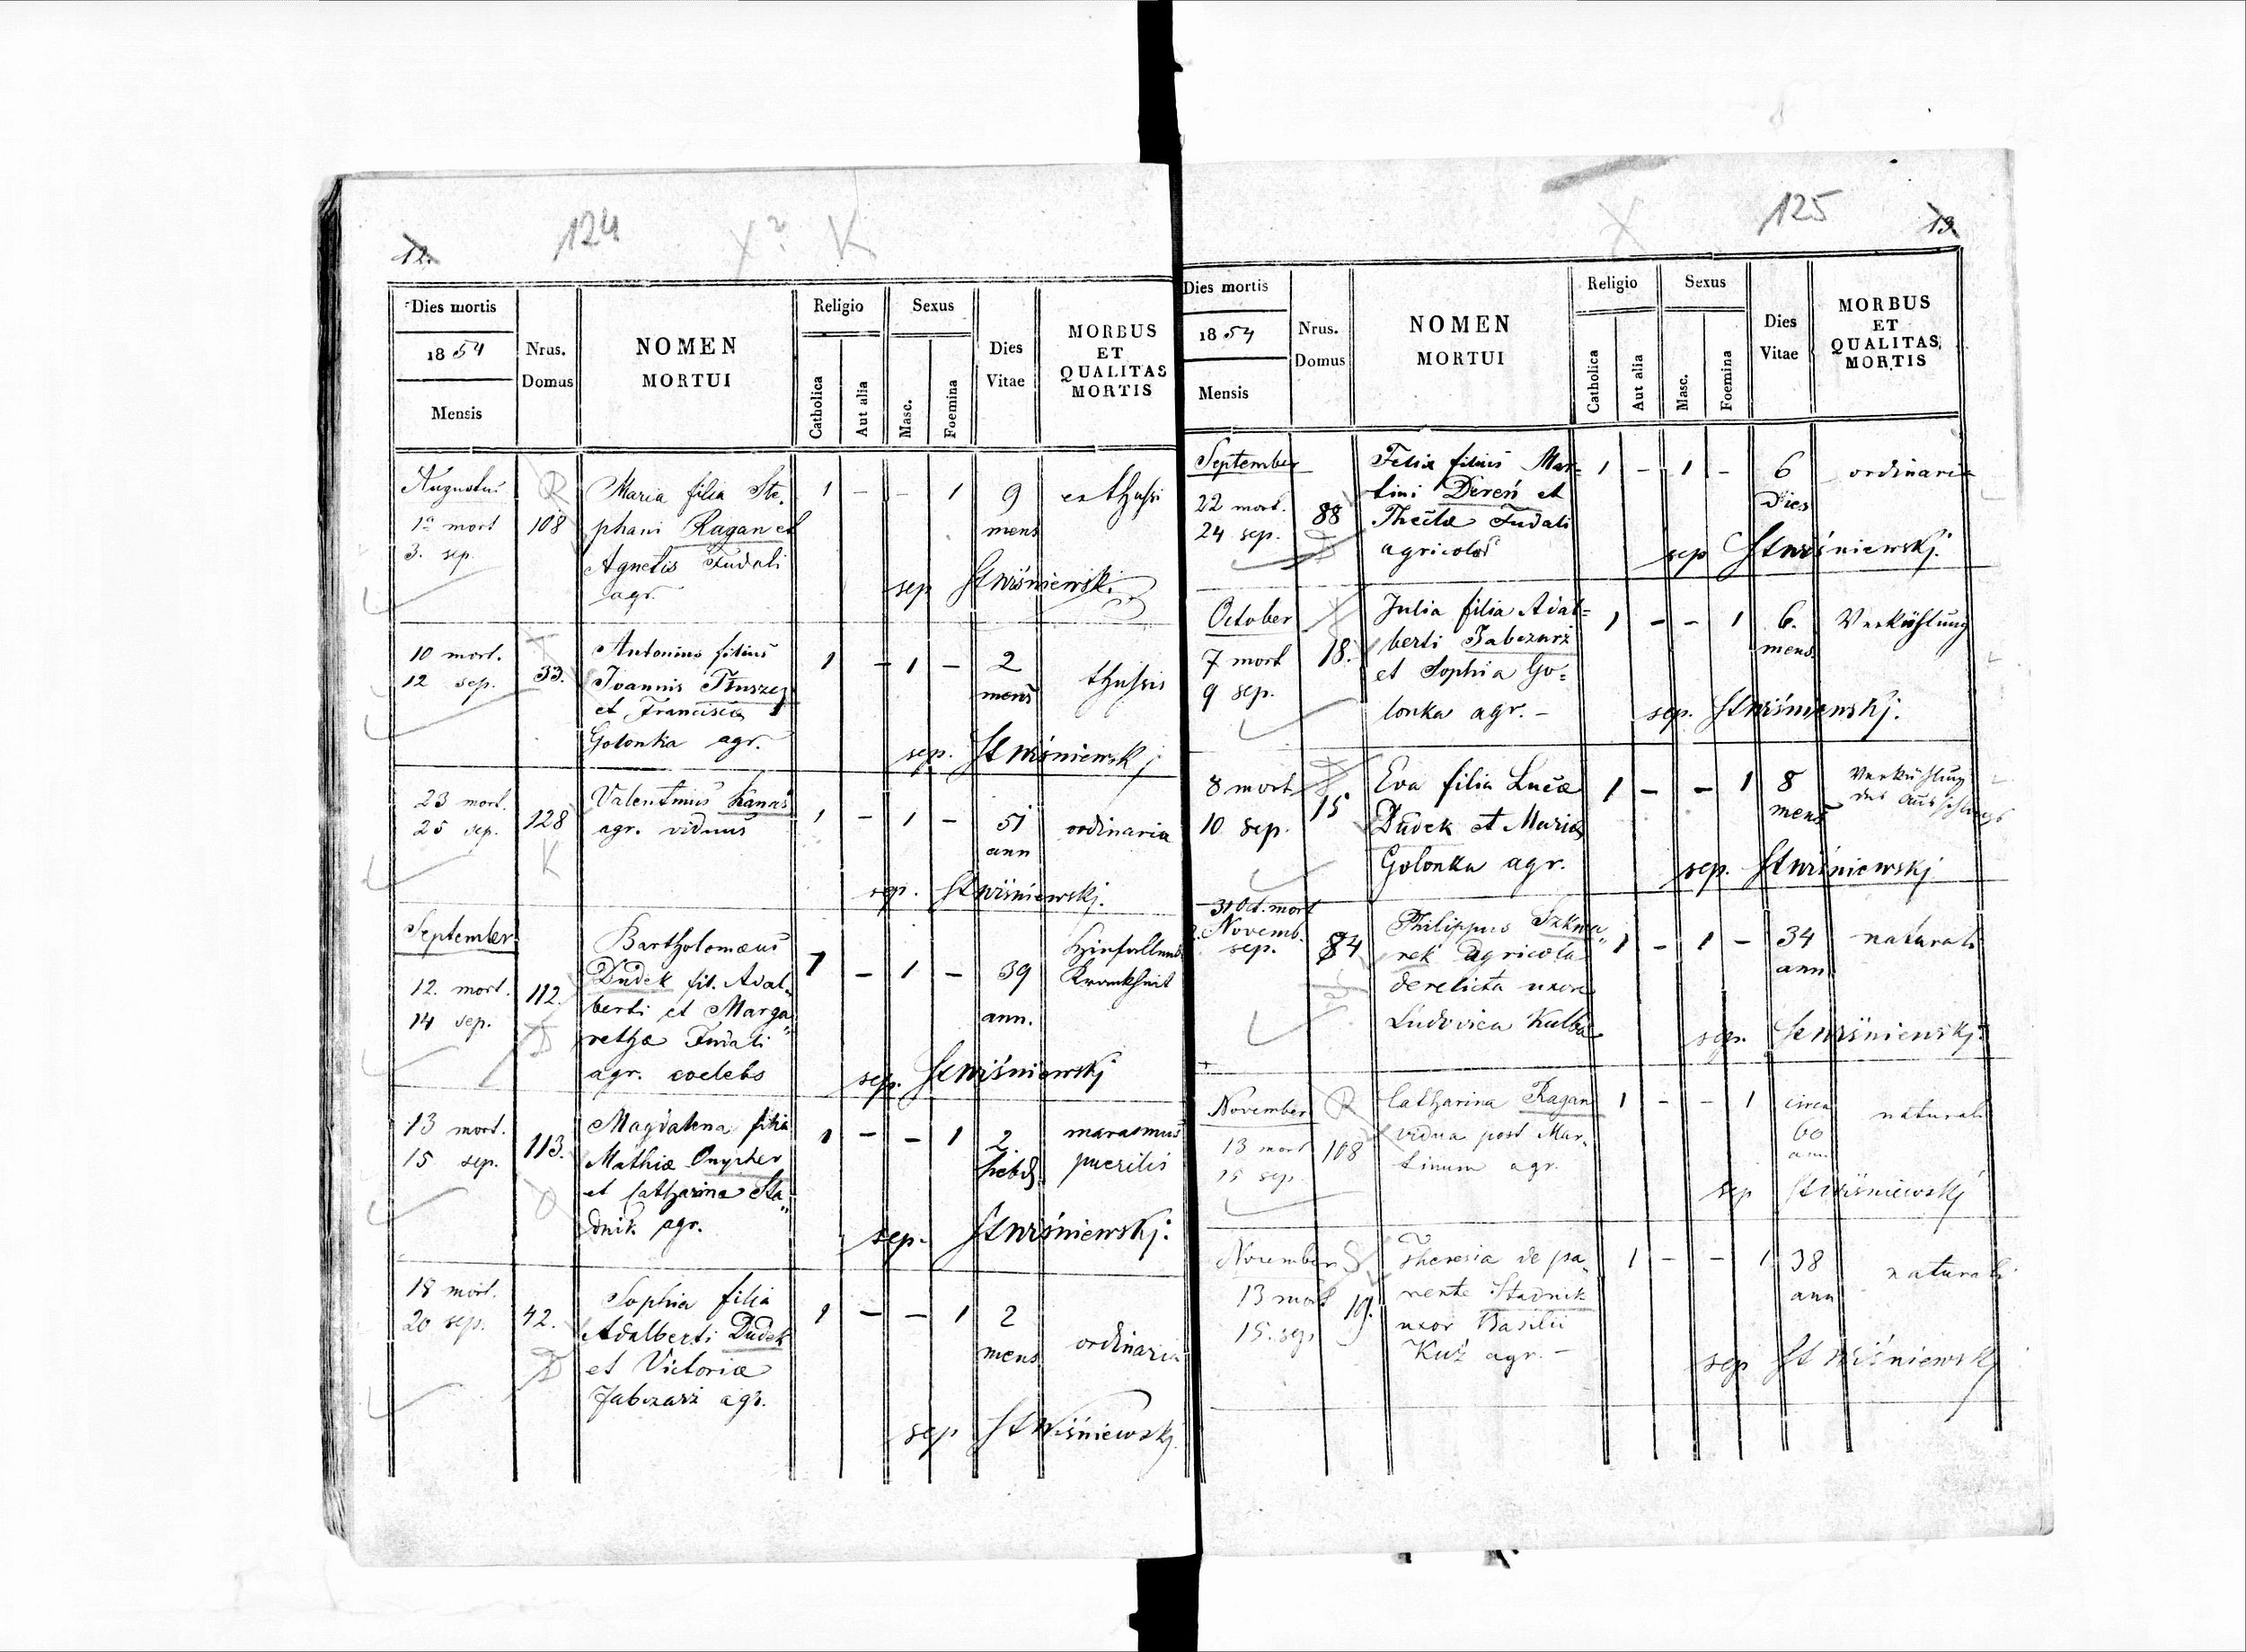 12.
124
X? K
Dies mortis
1854
Mensis
Nrus.
Domus
NOMEN
MORTUI
Religio
Catholica
Aut alia
Sexus
Masc.
Foemina
Dies
Vitae
MORBUS
ET
QUALITAS
MORTIS
Augustus
1a mort
3. sep.
R
108
Maria filia Ste-
phani Ragan et
Agnetis Fudali
agr.
1 - - 1
9
mens
ex thussi
sep St Wiśniewski.
10 mort.
12 sep.
33.
Antonius filius
Joannis Tłuszcz
et Francisca
Golonka agr.
1 - 1 -
2
mens
thussis
sep. St Wiśniewskj
23 mort.
25 sep.
128
K
Valentinus Kanas
agr. viduus
1 - 1 -
51
ann
ordinaria
sep. St Wiśniewskj.
September
12. mort.
14 sep.
112.
D
Bartholomæus
Dudek fil. Adal-
berti et Marga-
rethæ Fudali
agr. coelebs
1 - 1 -
39
ann.
Hinfallende
Krankheit
sep. St Wiśniewskj
13 mort.
15 sep.
113.
O
Magdalena filia
Mathiæ Onypher
et Catharina Sta-
dnik agr.
1 - - 1
2
hebd
marasmus
puerilis
sep. St Wiśniewskj.
18 mort.
20 sep.
42.
D
Sophia filia
Adalberti Dudek
et Victoriæ
Jabczarz agr.
1 - - 1
2
mens
ordinaria
sep St Wiśniewskj
X
125
13.
Dies mortis
1854
Mensis
Nrus.
Domus
NOMEN
MORTUI
Religio
Catholica
Aut alia
Sexus
Masc.
Foemina
Dies
Vitae
MORBUS
ET
QUALITAS
MORTIS
September
22 mort.
24 sep.
88
D
Felix filius Mar-
tini Dereń et
Theclæ Fudali
agricolæ
1 - 1 -
6
Dies
ordinaria
sep St Wiśniewskj.
October
7 mort
9 sep.
18.
Julia filia Adal=
berti Jabczarz
et Sophia Go=
lonka agr. -
1 - - 1
6.
mens.
Verkühlung
sep. St Wiśniewskj.
8 mort
10 sep.
15
Eva filia Lucæ
Dudek et Maria
Golonka agr.
1 - - 1
8
mens
Verkühlung
des Ausschlages
sep. St Wiśniewskj
31 Oct. mort
2. Novemb.
sep.
84
Philippus Szkna-
rek agricola
derelicta uxore
Ludovica Kulba
1 - 1 -
34
ann
naturali
sep. St Wiśniewskj.
November
13 mort
15 sep
R
108
Catharina Ragan
vidua post Mar-
tinum agr.
1 - - 1
circa
60
ann
naturali
sep St Wiśniewskj
November
13 mort
15. sep
S
19.
Theresia de pa-
rente Stadnik
uxor Basilii
Kuź agr. -
1 - - 1
38
ann
naturali
sep St Wiśniewskj